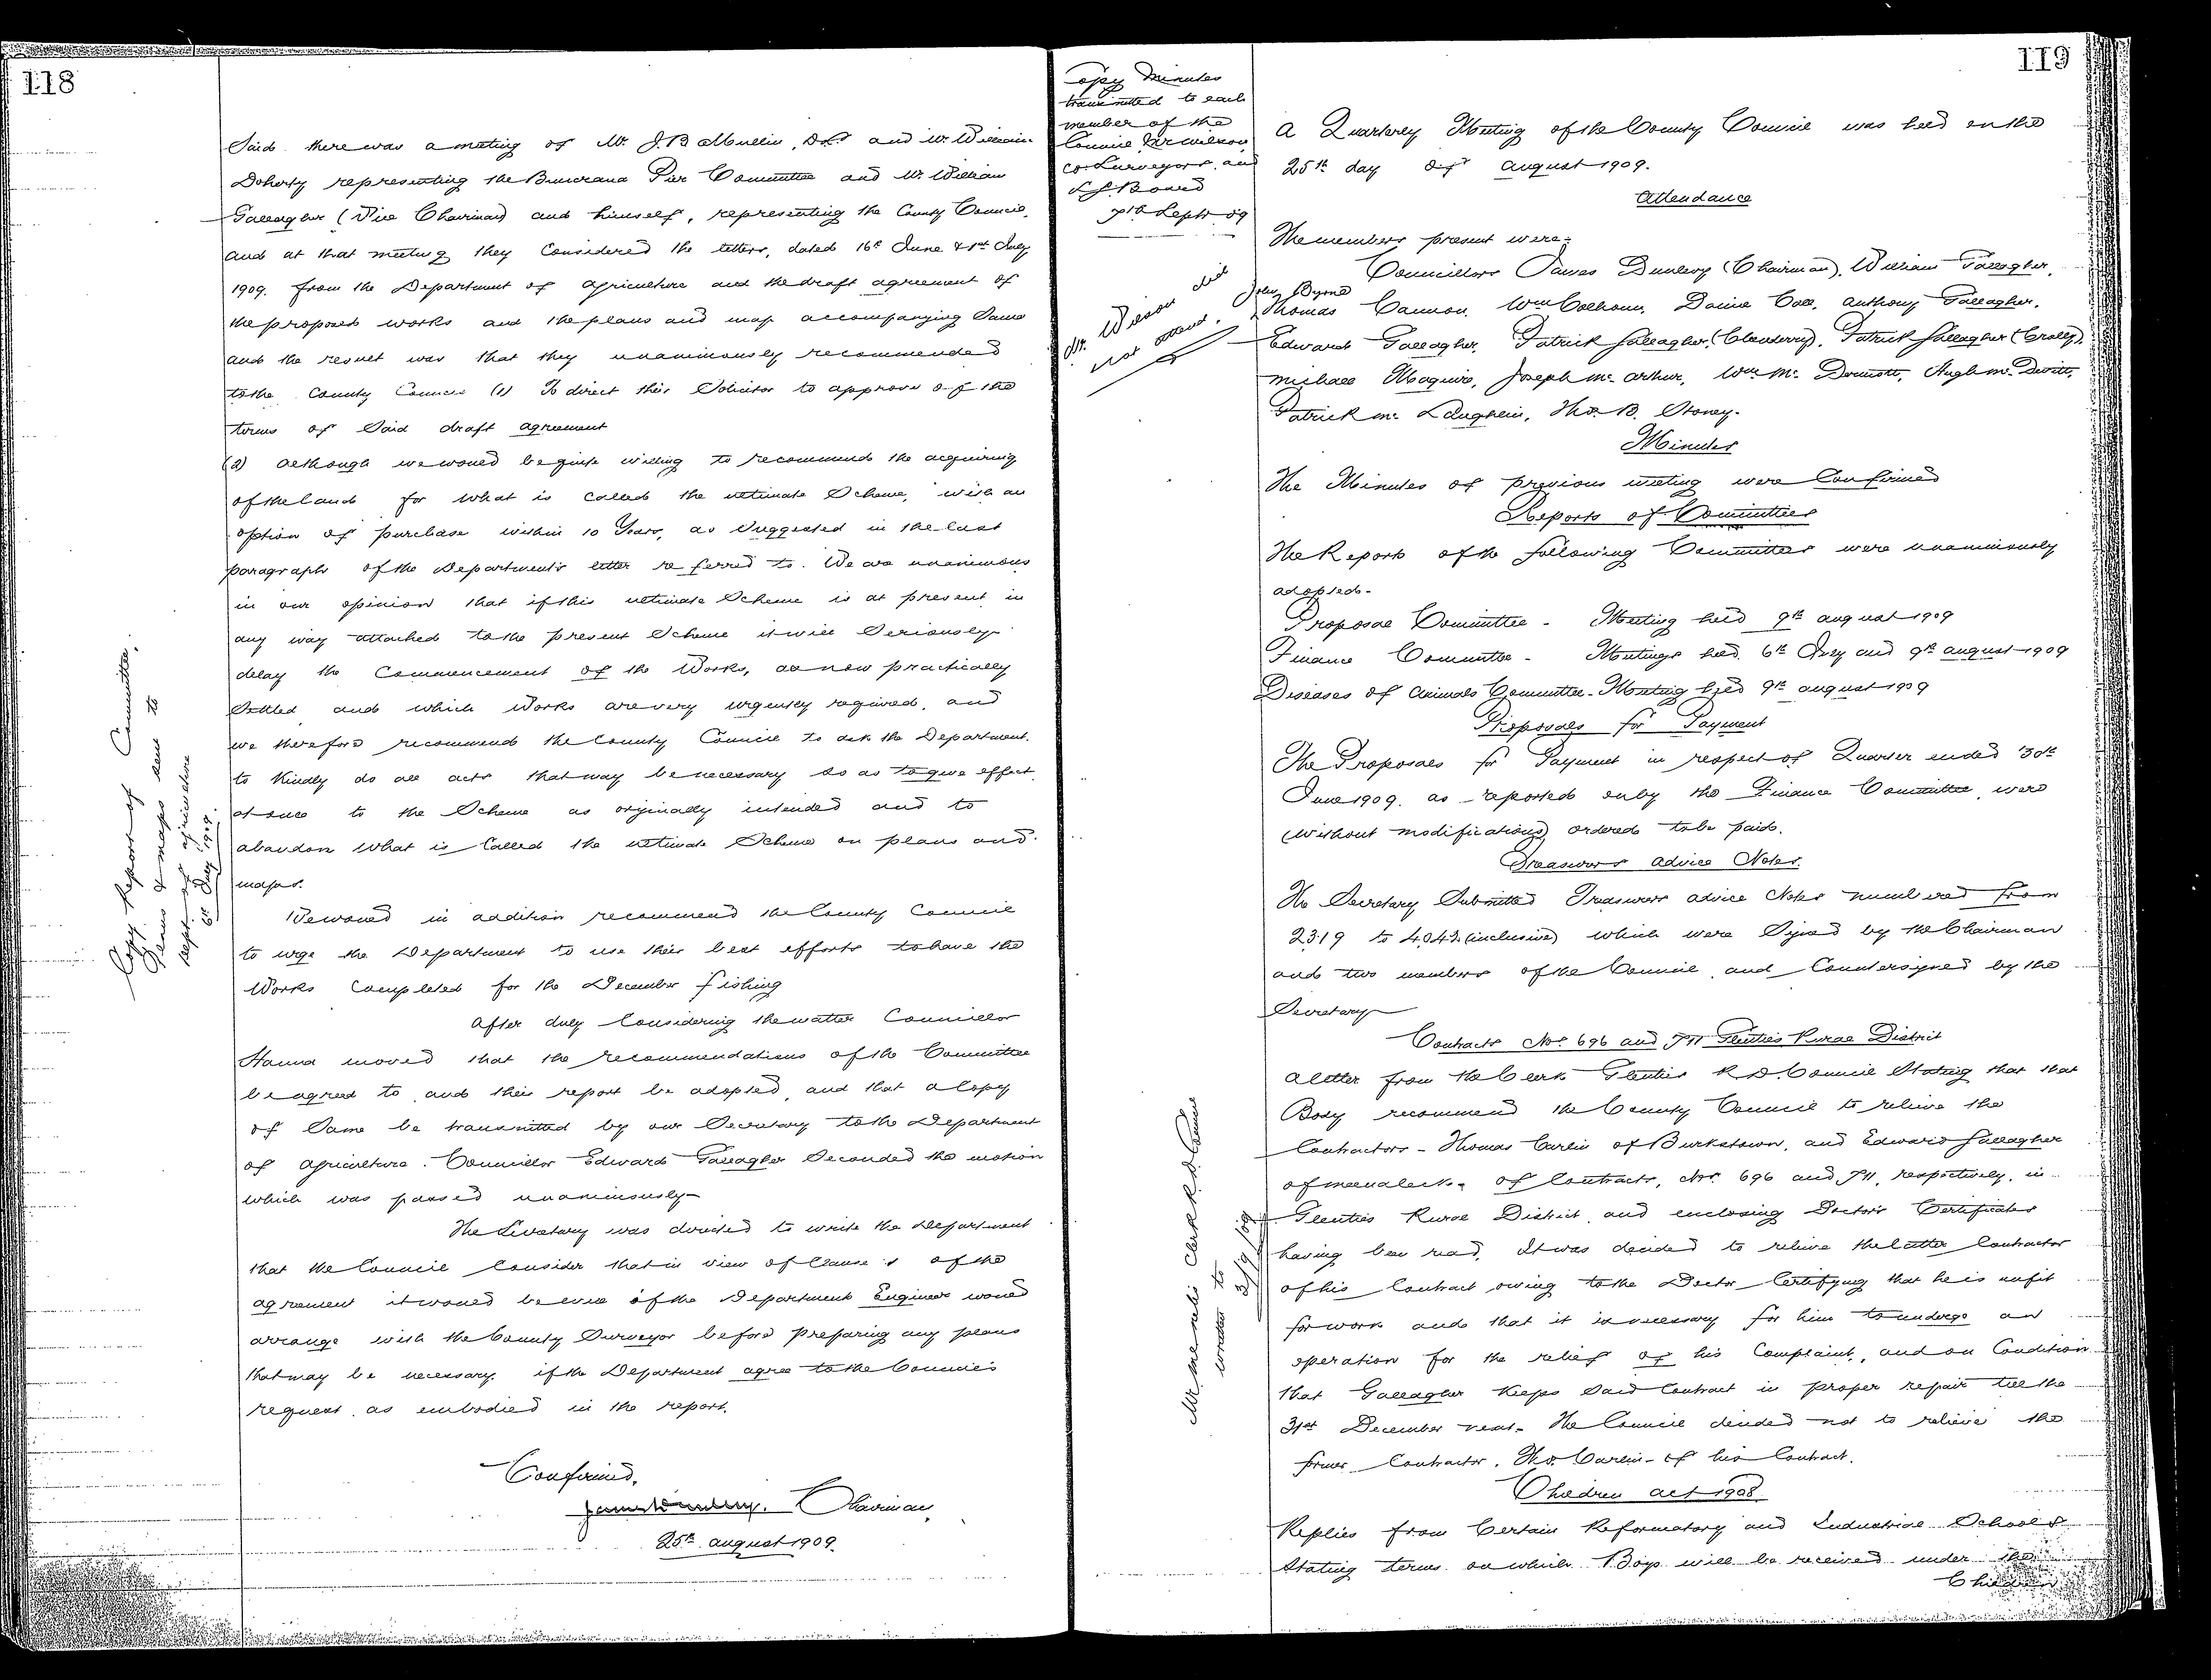 118
Said there was a meeting of Mr. J. B. McMullin, D.L. and Mr. William
Doherty representing the Buncrana Pier Committee and Mr William
Gallagher (Vice Chairman) and himself, representing the County Council,
and at that meeting they considered the letters, dated 16th June & 1st July
1909, from the Department of Agriculture and the draft agreement of
the proposed works and the plans and map accompanying Same
and the result was that they unanimously recommended
to the County Council (1) To direct their Solicitor to approve of the
terms of Said draft agreement
(2) although we would be quite willing to recommend the acquiring
of the land for what is called the ultimate Scheme, with an
option of purchase within 10 Years, as Suggested in the last
paragraph of the Department's letter referred to. We are unanimous
in our opinion that if this ultimate Scheme is at present in
any way attached to the present Scheme it will Seriously
delay the Commencement of the Works, as now practically
Settled and which Works are very urgently required, and
we therefore recommend the County Council to ask the Department
to Kindly do all acts that may be necessary so as to give effect
at once to the Scheme as originally intended and to
abandon what is Called the ultimate Scheme on plans and
maps.
We would in addition recommend the County Council
to urge the Department to use their best efforts to have the
Works Completed for the December fishing
After duly Considering the matter Councillor
Hanna moved that the recommendations of the Committee
be agreed to and their report be adopted, and that a Copy
of Same be transmitted by our Secretary to the Department
of Agriculture. Councillor Edward Gallagher Seconded the motion
which was passed unanimously.
The Secretary was directed to write the Department
that the Council Consider that in view of Clause of the
agreement it would be well if the Department Engineer would
arrange with the County Surveyor before preparing any plans
that may be necessary, if the Department agree to the Council's
request, as embodied in the report.
Confirmed,
Chairman,
25th August 1909.
Copy Report of Committee,
Plans & maps sent to
Dept. of Agriculture
6th July 1909.
119
Copy Minutes
transmitted to each
member of the
Council, Mr Wilson,
Co. Surveyors, and
L G Board
7th Septr 09
Mr. Wilson did
not attend.
A Quarterly Meeting of the County Council was held on the
25th day of August 1909.
Attendance
The members present were:
Councillors James Dunlevy (Chairman), William Gallagher,
John Byrne
Thomas Cannon, Wm Colhoun, Daniel Coll, Anthony Gallagher,
Edward Gallagher, Patrick Gallagher, Patrick Gallagher (Crolly),
Michael Maguire, Joseph Mc Arthur, Wm Mc Dermott, Hugh Mc Devitt,
Patrick Mc Laughlin, Thos. B. Stoney.
Minutes
The Minutes of previous meeting were Confirmed
Reports of Committees
The Reports of the following Committees were unanimously
adopted.
Proposal Committee - Meeting held 9th August 1909
Finance Committee - Meetings held 6th July and 9th August 1909
Diseases of Animals Committee - Meeting held 9th August 1909
Proposals for Payment
The Proposals for Payment in respect of Quarter ended 30th
June 1909, as reported on by the Finance Committee, were
(without modifications) ordered to be paid.
Treasurer's advice Notes.
The Secretary Submitted Treasurer's advice Notes numbered from
2319 to 4042 (inclusive) which were Signed by the Chairman
and two members of the Council and Countersigned by the
Secretary
Contracts Nos 696 and 711 Glenties Rural District
A letter from the Clerk Glenties R. D. Council Stating that that
Body recommend the County Council to relieve the
Contractors - Thomas Carlin of Burkstown, and Edward Gallagher
of Meenaleck - of Contracts, Nos. 696 and 711, respectively, in
Glenties Rural District, and enclosing Doctor's Certificates
having been read, It was decided to relieve the latter Contractor
of his Contract owing to the Doctor Certifying that he is unfit
for work and that it is necessary for him to undergo an
operation for the relief of his Complaint, and on Condition
that Gallagher Keeps Said Contract in proper repair till the
31st December next. The Council decided not to relieve the
former Contractor, Thos. Carlin - of his Contract.
Clerk R. D. Council
written to
Children Act 1908
Replies from Certain Reformatory and Industrial Schools
Stating terms on which Boys will be received under the
Children